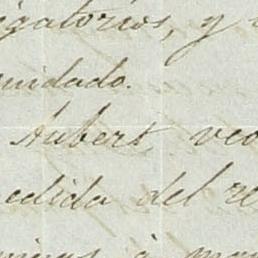 egatorios, y
uidado.
Aubert veo
edida del re